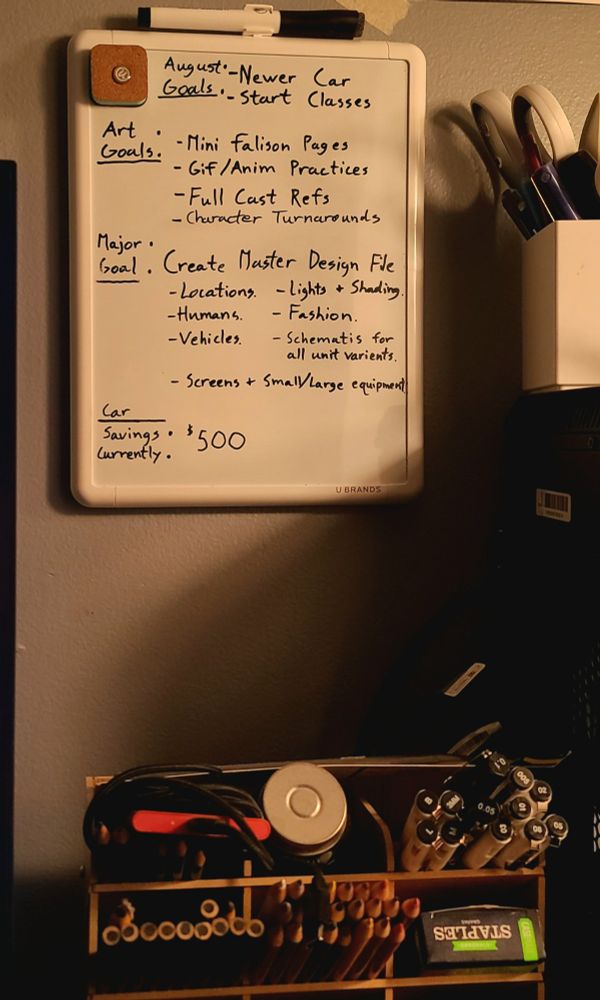 August • - Newer Car
Goals. • - Start Classes
Art •
Goals. - Mini Falison Pages
- Gif/Anim Practices
- Full Cast Refs
- Character Turnarounds
Major •
Goal . Create Master Design File
- Locations. - Lights + Shading.
- Humans. - Fashion.
- Vehicles. - Schematis for
all unit varients.
- Screens + Small/Large equipment
Car
Savings • $500
Currently .
U BRANDS
0.1
005
B
0.05
01
02
08
M
STAPLES